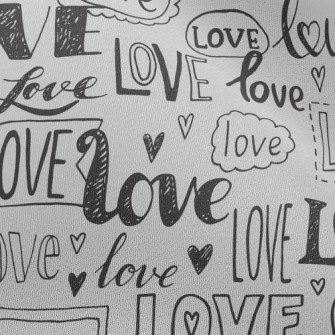 LOVE
love
LOVE
love
LOVE
love
love
LOVE
love
love
LOVE
love
love
LOVE